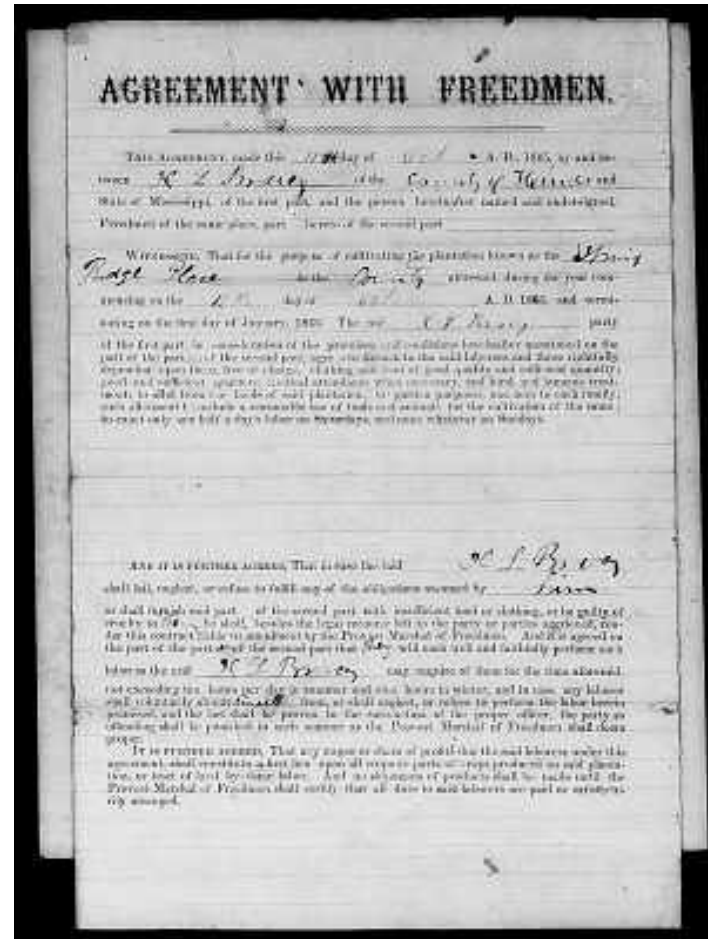 AGREEMENT WITH FREEDMEN.
THIS AGREEMENT, made this day of A. D., 1865, by and be-
tween of the County of Hinds and
State of Mississippi, of the first part, and the persons hereinafter named and undersigned,
Freedmen of the same place, part of the second part
WITNESSETH, That for the purpose of cultivating the plantation known as the Spring
Ridge Place in the County aforesaid, during the year com-
mencing on the day of A. D. 1865, and termi-
nating on the first day of January, 1866. The said party
of the first part, in consideration of the promises and conditions hereinafter mentioned on the
part of the part of the second part, agree to furnish to the said laborers and those rightfully
dependent upon them, free of charge, clothing and food of good quality and sufficient quantity;
good and sufficient quarters; medical attendance when necessary, and kind and humane treat-
ment; to allot from the lands of said plantation, for garden purposes, to each family;
such allotment to include a reasonable use of tools and animals for the cultivation of the same;
to exact only one half a day's labor on Saturdays, and none whatever on Sundays.
AND IT IS FURTHER AGREED, That in case the said
shall fail, neglect, or refuse to fulfil any of the obligations assumed by him
or shall furnish said part of the second part with insufficient food or clothing, or be guilty of
cruelty to he shall, besides the legal recourse left to the party or parties aggrieved, ren-
der this contract liable to annulment by the Provost Marshal of Freedmen. And it is agreed on
the part of the part of the second part that they will each well and faithfully perform such
labor as the said may require of them for the time aforesaid,
not exceeding ten hours per day in summer and nine hours in winter, and in case any laborer
shall voluntarily absent from, or shall neglect, or refuse to perform the labor herein
promised, and the fact shall be proven to the satisfaction of the proper officer, the party so
offending shall be punished in such manner as the Provost Marshal of Freedmen shall deem
proper.
IT IS FURTHER AGREED, That any wages or share of profit due the said laborers under this
agreement, shall constitute a first lien upon all crops or parts of crops produced on said planta-
tion, or tract of land by their labor. And no shipment of products shall be made until the
Provost Marshal of Freedmen shall certify that all dues to said laborers are paid or satisfacto-
rily arranged.